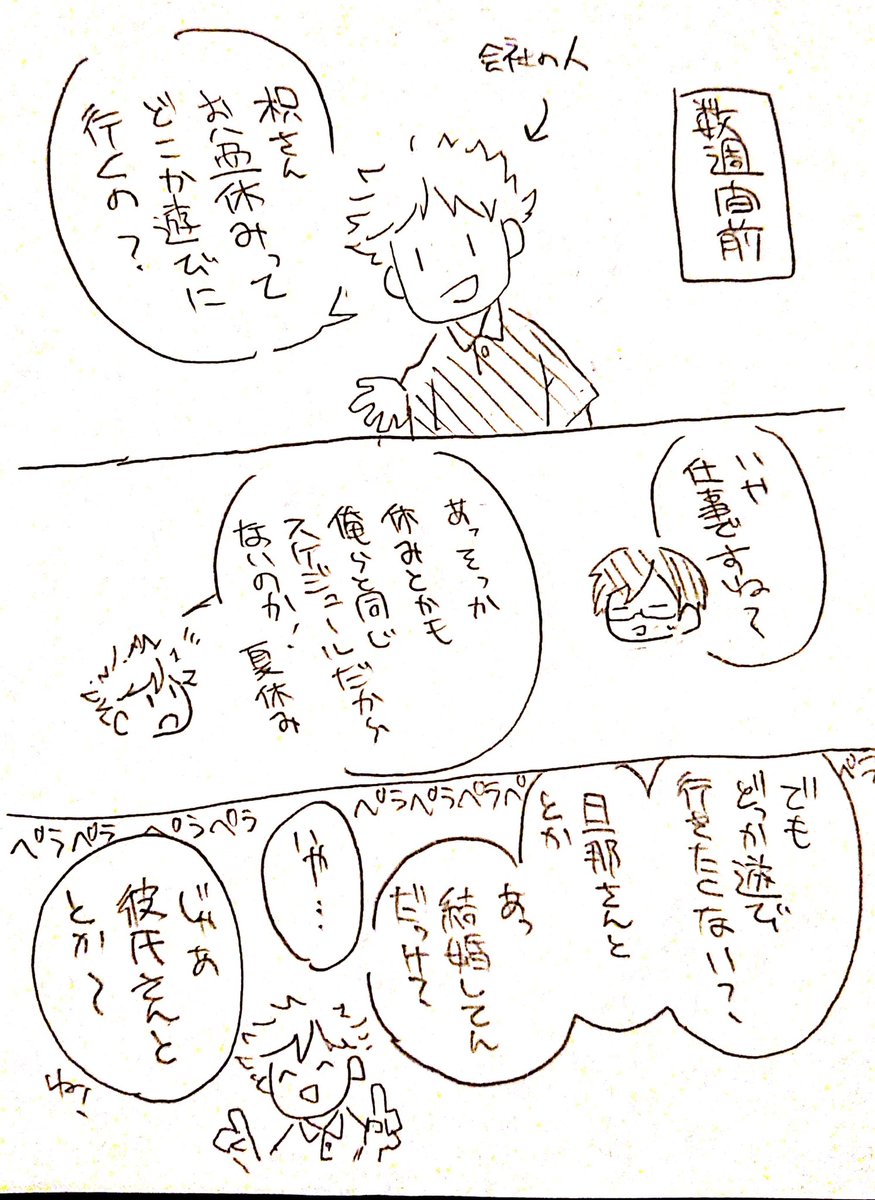 数週間前
会社の人
枳さん
お盆休みって
どこか遊びに
行くの?
いや
仕事ですねて
あっそっか
休みとかも
俺らと同じ
スケジュールだから
ないのか!夏休み
ペラ
でも
どっか遊び
行きたくない?、
旦那さんと
とか
あっ
結婚してん
だっけ?
ペラペラペラペ
いや…
ペラペラ ペラペラ
じゃあ
彼氏さんと
とか〜
ね!